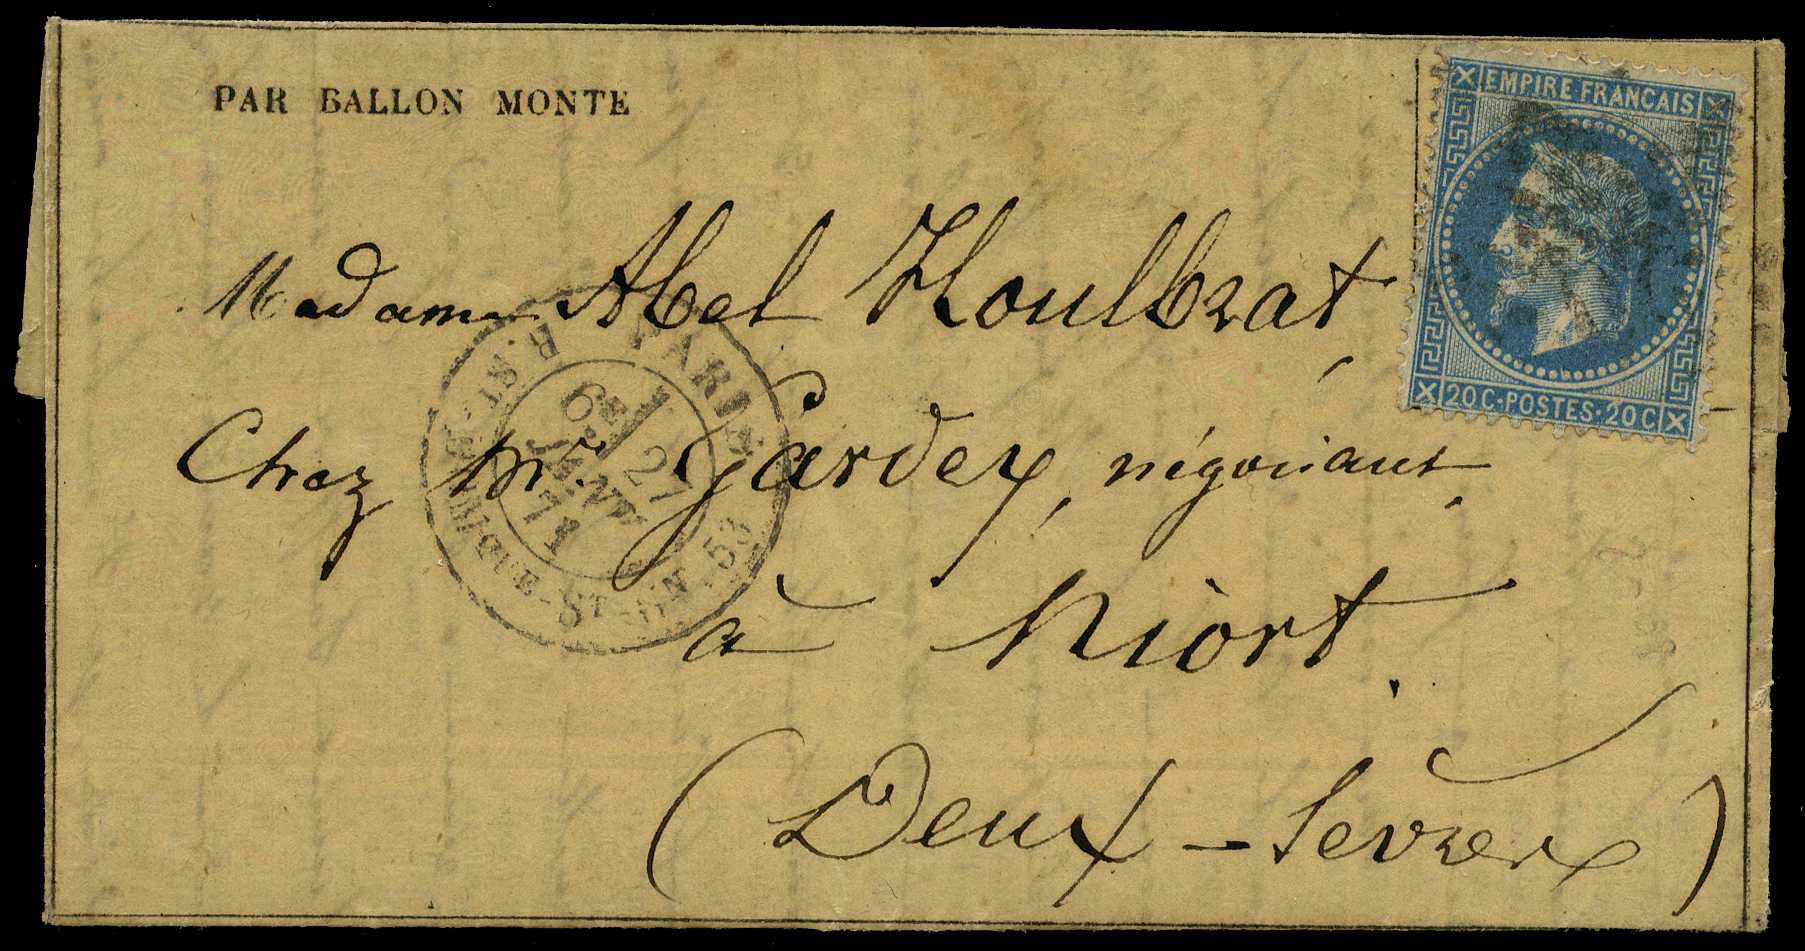 PAR BALLON MONTE
EMPIRE FRANCAIS
20C·POSTES·20C
Madame Abel Houlbrat,
Chez Mr. Gardey, négociant,
à Niort.
(Deux-Sèvres)
PARIS
6E 27
JANV.
71
ST - 53